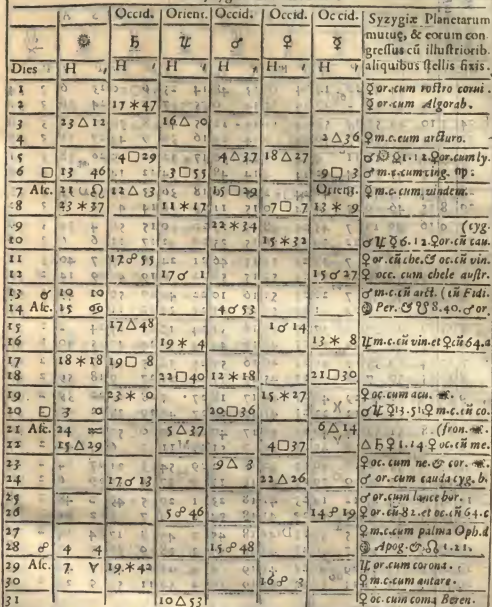 Occid. Orient. Occid. Occid. Occid. Syzygiæ Planetarum
☉ ♄ ♃ ♂ ♀ ☿ mutuę, & eorum con
gressus cũ illustriorib.
Dies H H H H H H aliquibus stellis fixis.
1 ☿ or. cum rostro corui.
2 17 ✶ 47 ☿ or cum Algorab.
3 23 △ 12
4 2 △ 36 ♀ m.c. cum arcturo.
5 4 □ 29 4 △ 37 18 △ 27
6 □ 13 46 3 □ 55 9 □ 3
7 Asc. 21 ♌ 12 △ 53 15 □ 29 Orient. ♀ m.c. cum vindem.
8 23 ✶ 37 11 ✶ 17 7 □ 7 13 ✶ 9
9 22 ✶ 34 (cyg.
10 15 ✶ 32 ♂ ♃ ☿ 6.12. ♀ or. cũ cau.
11 17 ☍ 55
12 17 ☌ 1 15 ☌ 27 ♀ occ. cum chele austr.
13 ☌ 10 10 ♂ m.c. cũ arct. (cũ Fidi.
14 Asc. 15 4 ☌ 53
15 17 △ 48 1 ☌ 14
16 19 ✶ 4 13 ✶ 8 ♃ m.c. cũ vin. et ♀ cũ 64.a
17 18 ✶ 18 19 □ 8
18 22 □ 40 12 ✶ 18 21 □ 30
19 23 ✶ 0 15 ✶ 27 ♀ oc. cum acu.
20 □ 3 20 □ 36
21 Asc. 24 ♒ 5 △ 37 6 △ 14 (fron.
22 15 △ 29 4 □ 37 △ ♄ ♀ 1.14 ♀ oc. cũ me.
23 9 △ 3 ♀ oc. cum ne. & cor.
24 17 ☌ 13 22 △ 26 ♂ or. cum cauda cyg. b.
25 ♂ or. cum lance bor.
26 5 ☍ 46 14 ☍ 19 ♀ or. cũ 82. et oc. cũ 64.c
27 ♀ m.c. cum palma Oph. d
28 ☍ 4 4 15 ☍ 48 Apog. & ☊ 1.21.
29 Asc. 7 ♈ 19 ✶ 42 ♃ or. cum corona.
30 16 ☍ 3 ♀ m.c. cum antare.
31 10 △ 53 ♀ oc. cum coma Beren.